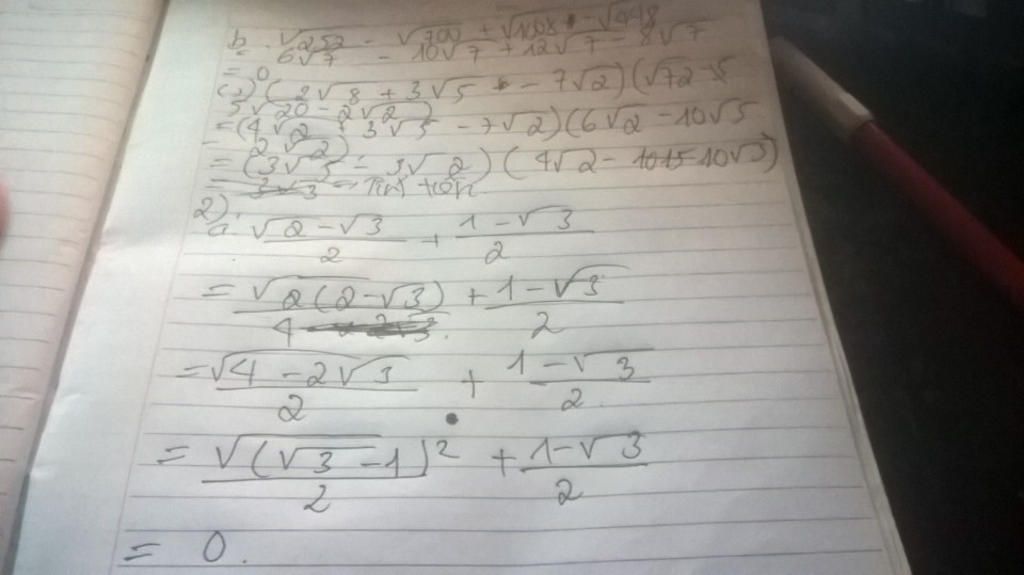 b. √252 - √700 + √1008 - √448
= 6√7 - 10√7 + 12√7 - 8√7
= 0
c) (2√8 + 3√5 - 7√2)(√72 - 5
5√20 - 2√2)
= (4√2 + 3√5 - 7√2)(6√2 - 10√5
- 2√2)
= (3√5 - 3√2)(4√2 - 1015-10√5)
2).
a. √2-√3/2 + 1-√3/2
= √2(2-√3)/4 + 1-√3/2
= √4-2√3/2 + 1-√3/2
= √(√3-1)²/2 + 1-√3/2
= 0.